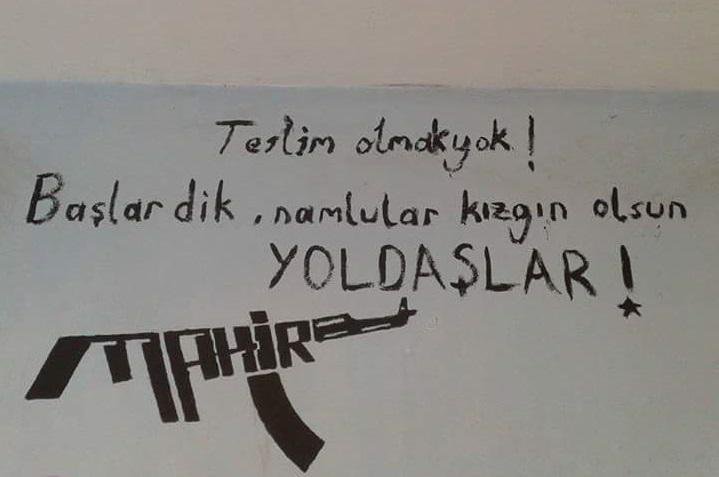 Teslim olmak yok!
Başlar dik, namlular kızgın olsun
YOLDAŞLAR!
MAHİR